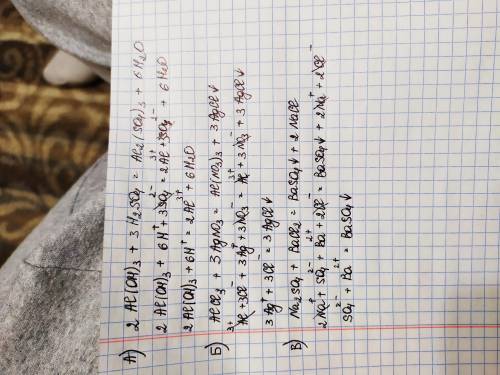 А) 2 Al(OH)₃ + 3 H₂SO₄ = Al₂(SO₄)₃ + 6 H₂O
2 Al(OH)₃ + 6 H⁺ + 3 SO₄²⁻ = 2 Al³⁺ + 3SO₄²⁻ + 6 H₂O
2 Al(OH)₃ + 6 H⁺ = 2 Al³⁺ + 6 H₂O
Б) AlCl₃ + 3 AgNO₃ = Al(NO₃)₃ + 3 AgCl↓
Al³⁺ + 3Cl⁻ + 3 Ag⁺ + 3 NO₃⁻ = Al³⁺ + 3 NO₃⁻ + 3 AgCl↓
3 Ag⁺ + 3 Cl⁻ = 3 AgCl↓
В) Na₂SO₄ + BaCl₂ = BaSO₄↓ + 2 NaCl
2 Na⁺ + SO₄²⁻ + Ba²⁺ + 2Cl⁻ = BaSO₄↓ + 2 Na⁺ + 2 Cl⁻
SO₄²⁻ + Ba²⁺ = BaSO₄↓